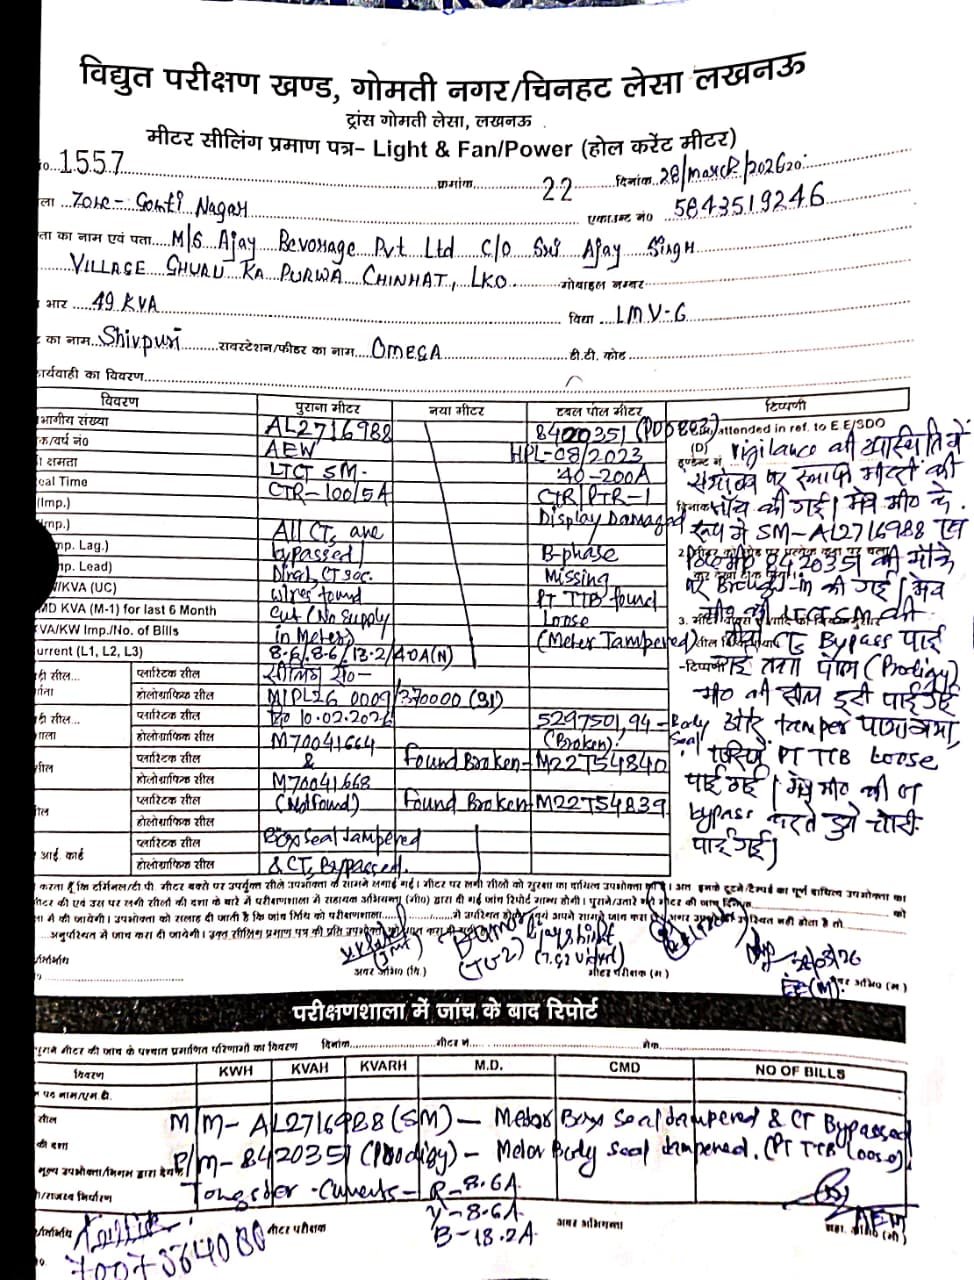 विद्युत परीक्षण खण्ड, गोमती नगर/चिनहट लेसा लखनऊ
ट्रांस गोमती लेसा, लखनऊ
मीटर सीलिंग प्रमाण पत्र- Light & Fan/Power (होल करेंट मीटर)
1557 क्रमांक 22 दिनांक 28/March/2026
Zone- Gomti Nagar एकाउन्ट नं० 5843519246
ता का नाम एवं पता M/S Ajay Bevorage Pvt Ltd C/O Sri Ajay Singh
VILLAGE GHURU KA PURWA CHINHAT, LKO. मोबाइल नम्बर
भार 49 KVA विद्या LMV-6
का नाम Shivpuri सबस्टेशन/फीडर का नाम OMEGA टी.टी. कोड
कार्यवाही का विवरण
विवरण पुराना मीटर नया मीटर डबल पोल मीटर टिप्पणी
भागीय संख्या AL2716988 8420351 attended in ref. to E.E/SDO
क/वर्ष नं० AEW HPL-08/2023
क्षमता LTCT SM. 40-200A
eal Time CTR-100/5A CTR/PTR-1
(Imp.) Display Damaged
mp.) All CTs are
mp. Lag.) bypassed/ B-phase
mp. Lead) Direct, CT sec. Missing
/KVA (UC) wires found PT TTB found
MD KVA (M-1) for last 6 Month cut/No Supply Loose
VA/KW Imp./No. of Bills in Meter) (Meter Tampered)
urrent (L1, L2, L3) 8.6/8.6/13.2/40A(N)
vigilance की उपस्थिति में
परिसर पर स्थापित मीटरों की
जाँच की गई। मेन मी० के
रूप में SM-AL2716988 एवं
8420351 की मौके
पर की गई। मेन
मी० की LTCT SM की
CT Bypass पाई
गई तथा पोल (Prodigy)
मी० की सील टूटी पाई गई
और temper पाया गया,
PT TTB Loose
पाई गई। मेन मी० की CT
bypass करते हुये चोरी
पाई गई।
सील... प्लास्टिक सील सीलिंग सं०-
होलोग्राफिक सील MIPL26 0009/370000 (91)
सील... प्लास्टिक सील दि० 10.02.2026 5297501,94 - Body Seal
होलोग्राफिक सील M70041664 (Broken).
सील प्लास्टिक सील & Found Broken - M22T54840
होलोग्राफिक सील M70041668
प्लास्टिक सील (Not found) Found Broken M22T54839
होलोग्राफिक सील
आई. कार्ड प्लास्टिक सील Box seal tampered
होलोग्राफिक सील & CTs Bypassed.
करता हूँ कि टर्मिनल/टी.पी. मीटर बक्से पर उपर्युक्त सीलें उपभोक्ता के सामने लगाई गई। मीटर पर लगी सीलों की सुरक्षा का दायित्व उपभोक्ता का है। अतः इनके टूटने/टैम्पर्ड का पूर्ण दायित्व उपभोक्ता का
मीटर की एवं उस पर लगी सीलों की दशा के बारे में परीक्षणशाला में सहायक अभियन्ता (मी०) द्वारा दी गई जांच रिपोर्ट मान्य होगी।
में की जायेगी। उपभोक्ता को सलाह दी जाती है कि जांच तिथि को परीक्षणशाला में उपस्थित
अनुपस्थित में जांच करा दी जायेगी। उक्त सीलिंग प्रमाण पत्र की प्रति उपभोक्ता को
(TG2) 28/03/26
अवर अभि० (वि.) मीटर परीक्षक (म) अवर अभि० (म)
परीक्षणशाला में जांच के बाद रिपोर्ट
पुराने मीटर की जांच के पश्चात प्रमाणित परिणामों का विवरण दिनांक मीटर नं. मेक
विवरण KWH KVAH KVARH M.D. CMD NO OF BILLS
सील M/M- AL2716988 (SM) - Meter Box Seal tampered & CT Bypassed
की दशा P/M- 8420351 (Prodigy) - Meter Body seal tampered. (PT TTB Loose)
मूल्य उपभोक्ता/निगम द्वारा देय
/राजस्व निर्धारण Tongster - Currents - R-8.6A
Y-8.6A
B-18.2A
मीटर परीक्षक अवर अभियन्ता सहा. अभि० (मी)
7007564080